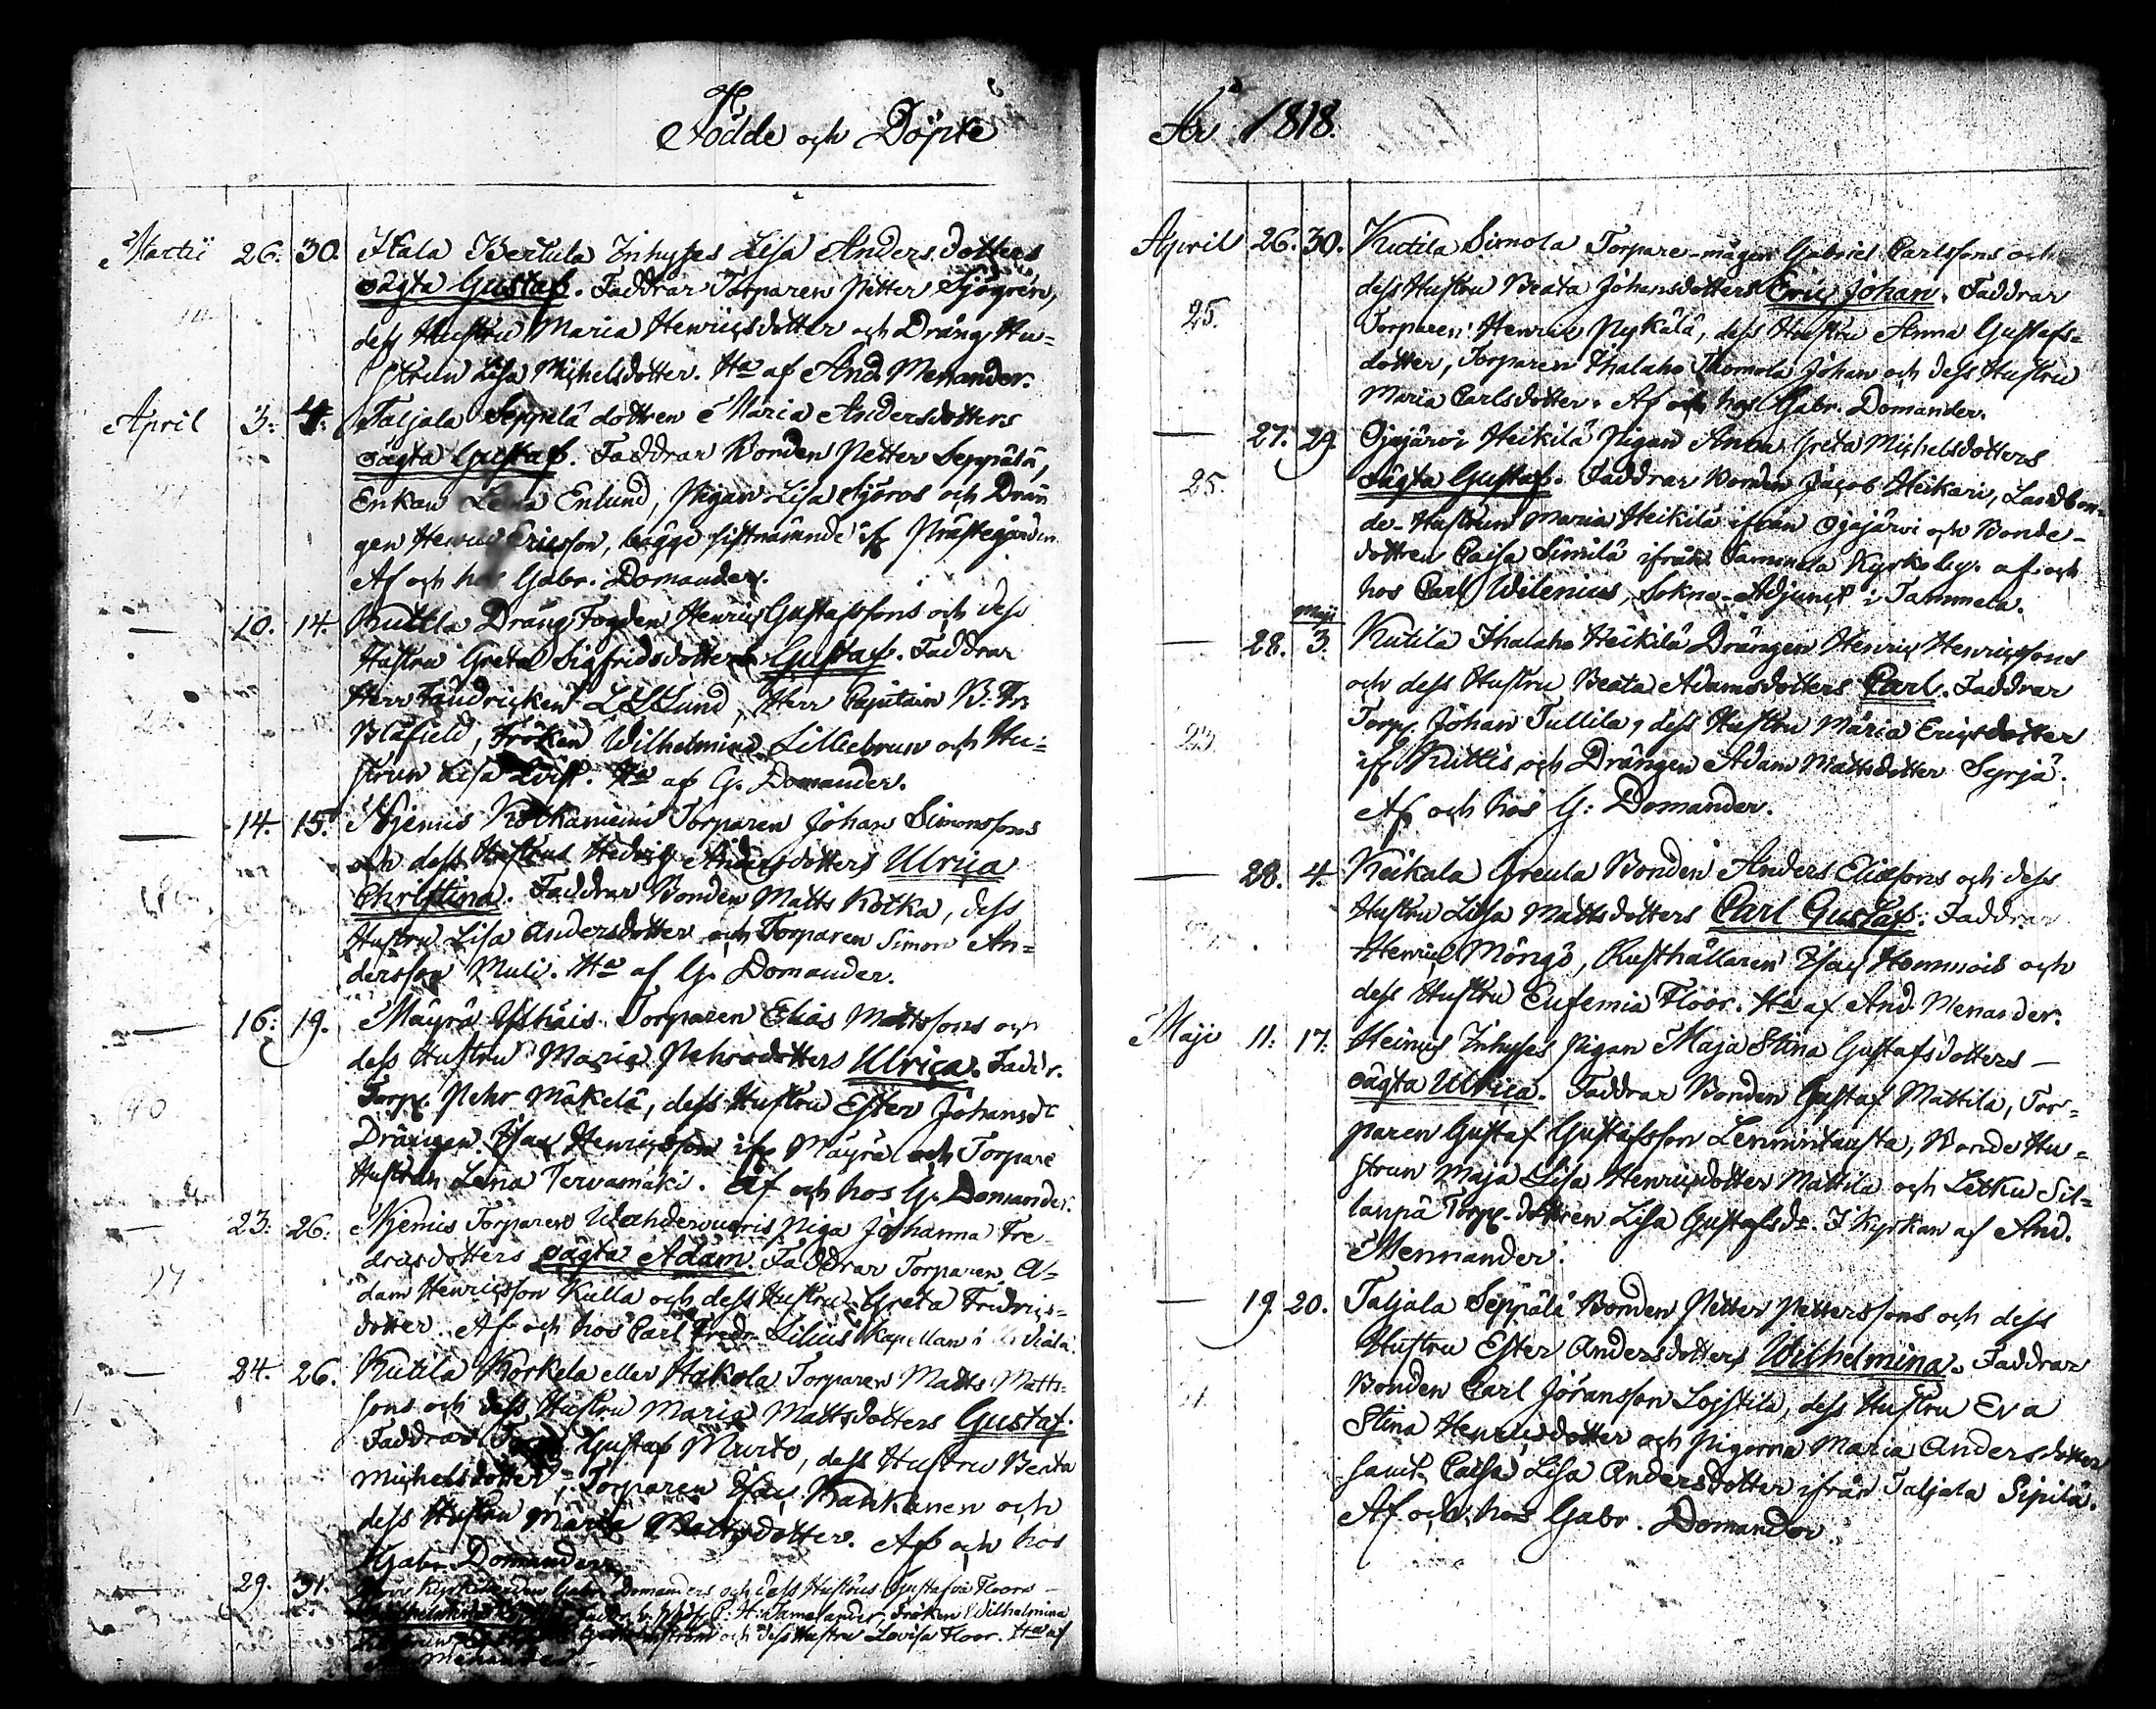 Födde och Döpte
Martii 26. 30. Itala Bertula Inhyses Lisa Anders dotters
oägta Gustaf. Faddrar Torparen Petter Sjögren,
dess Hustru Maria Henricsdotter och Dräng Hu=
strun Lisa Michelsdotter. Ha af And. Menander.
April 3. 4. Taljala Seppälä dottren Maria Andersdotters
oägta Gustaf. Faddrar Bonden Petter Seppälä,
Enkan Lena Enlund, Pigan Lisa Sjöros och Drän
gen Henric Ericsson, bägge sistnämnde if. Prästegården
Af och hos Gabr. Domander.
— 10. 14. Kutila Dräng Fogden Henric Gustafssons och dess
Hustru Greta Sigfridsdotters Gustaf. Faddrar
Herr Fändricken Lund, Herr Capitain B. Fr.
Blåfield, Fröken Wilhelmina Lilliebrun och Hu=
strun Lisa Qvist. Ha af G. Domander.
— 14. 15. Njemis Kotkaniemi Torparen Johan Simonssons
och dess Hustrus Hedvig Andersdotters Ulrica
Christina. Faddrar Bonden Matts Kotka, dess
Hustru Lisa Andersdotter och Torparen Simon An=
dersson Muli. Ha af G. Domander.
— 16. 19. Mäyrä Torparen Elias Mattssons och
dess Hustru Maria Pehrsdotters Ulrica. Faddr.
Torp. Pehr Mäkelä, dess Hustru Ester Johansdr
Drängen Isac Henricsson if. Mäyrä och Torpare
Hustrun Lena Tervamäki. Af och hos G. Domander.
— 23. 26. Njemis Torparen Wahdervuoris Piga Johanna Fre=
dricsdotters oägta Adam. Faddrar Torparen A=
dam Henricsson Kulla och dess Hustru Greta Fredrics=
dotter. Af och hos Carl Fredr. Lilius Kapellan i Urdiala.
— 24. 26. Kutila Körkelä eller Hakola Torparen Matts Matts=
sons och dess Hustru Maria Mattsdotters Gustaf.
Faddrar Gustaf Murto, dess Hustru Beata
Michelsdotter, Torparen Isac Kankanen och
dess Hustru Maria Mattsdotter. Af och hos
Gabr. Domander.
— 29. 31. Herr Gabr. Domanders och dess Hustrus Gustafva Floors
Faddr. P. H. Tamelander, Fröken Wilhelmina
och dess Hustru Lovisa Floor. Ha af
Menander.
År 1818.
April 26. 30. Kutila Simola Torpare-mågen Gabriel Carlssons och
dess Hustru Beata Johansdotters Eric Johan. Faddrar
25. Torparen Henric Nykälä, dess Hustru Anna Gustafs=
dotter, Torparen Ihalaho Thomola Johan och dess Hustru
Maria Carlsdotter. Af och hos Gabr. Domander.
— 27. 29. Ojajärvi Heikilä Pigan Anna Greta Michelsdotters
25. oägta Gustaf. Faddrar Bonden Jacob Heikari, Landbon=
de-Hustrun Maria Heikilä ifrån Ojajärvi och Bonde-
dottren Caisa Simila ifrån Tammela Kyrkoby. af och
hos Carl Wilenius, Sokne-Adjunct i Tammela.
Maji
— 28. 3. Kutila Ihalaho Heikilä Drängen Henric Henricssons
och dess Hustru Beata Adamsdotters Carl. Faddrar
23. Torp. Johan Tullila, dess Hustru Maria Ericsdotter
if. Kuttis och Drängen Adam Mattsdotter Syrjä.
Af och hos G: Domander.
— 28. 4. Keikala Greula Bonden Anders Eliæsons och dess
Hustru Lisa Mattsdotters Carl Gustaf. Faddrar
Henric Möngö, Rusthållaren Isac Hommois och
dess Hustru Eufemia Floor. Ha af And. Menander.
Maji 11. 17. Heinus Inhyses Pigan Maja Stina Gustafsdotters —
oägta Ulrica. Faddrar Bonden Gustaf Mattila, Tor=
paren Gustaf Gustafsson Lemmintausta, Bonde Hu=
strun Maja Lisa Henricsdotter Mattila och Letku Sil=
lanpä Torp. dottren Lisa Gustafsdr. I Kyrkan af And.
Mennander.
— 19. 20. Taljala Seppälä Bonden Petter Petterssons och dess
Hustru Ester Andersdotters Wilhelmina. Faddrar
Bonden Carl Jöransson Lojstila, dess Hustru Eva
Stina Henricsdotter och Pigorna Maria Andersdotter
samt Caisa Lisa Andersdotter ifrån Taljala Sipilä.
Af och hos Gabr. Domander.